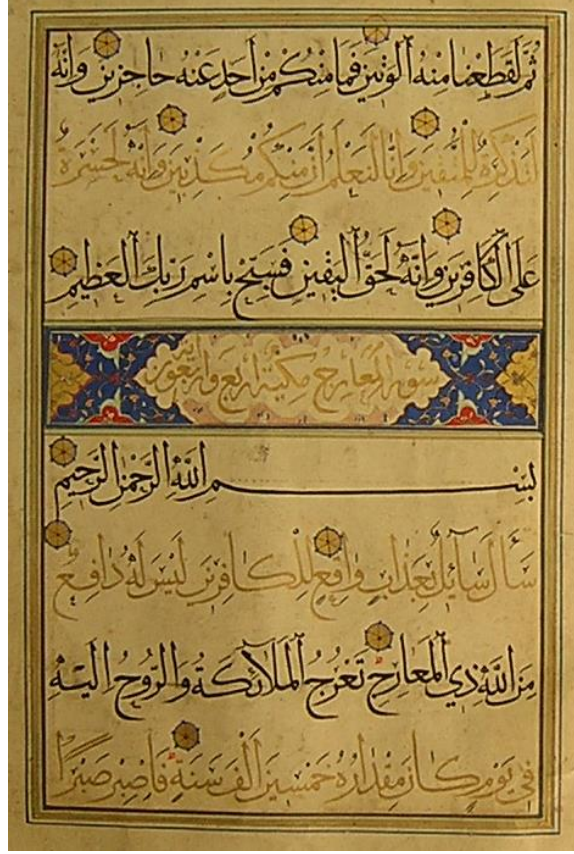 ثُمَّ لَقَطَعْنَا مِنْهُ ٱلْوَتِينَ فَمَا مِنْكُمْ مِنْ أَحَدٍ عَنْهُ حَاجِزِينَ وَإِنَّهُ
لَتَذْكِرَةٌ لِلْمُتَّقِينَ وَإِنَّا لَنَعْلَمُ أَنَّ مِنْكُمْ مُكَذِّبِينَ وَإِنَّهُ لَحَسْرَةٌ
عَلَى ٱلْكَافِرِينَ وَإِنَّهُ لَحَقُّ ٱلْيَقِينِ فَسَبِّحْ بِاسْمِ رَبِّكَ ٱلْعَظِيمِ
سورة المعارج مكية اربع واربعون اية
بِسْمِ ٱللَّهِ ٱلرَّحْمٰنِ ٱلرَّحِيمِ
سَأَلَ سَآئِلٌ بِعَذَابٍ وَاقِعٍ لِلْكَافِرِينَ لَيْسَ لَهُ دَافِعٌ
مِنَ ٱللَّهِ ذِي ٱلْمَعَارِجِ تَعْرُجُ ٱلْمَلَآئِكَةُ وَالرُّوحُ إِلَيْهِ
فِي يَوْمٍ كَانَ مِقْدَارُهُ خَمْسِينَ أَلْفَ سَنَةٍ فَاصْبِرْ صَبْرًا